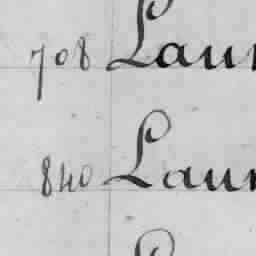 708 Laur
840 Laur